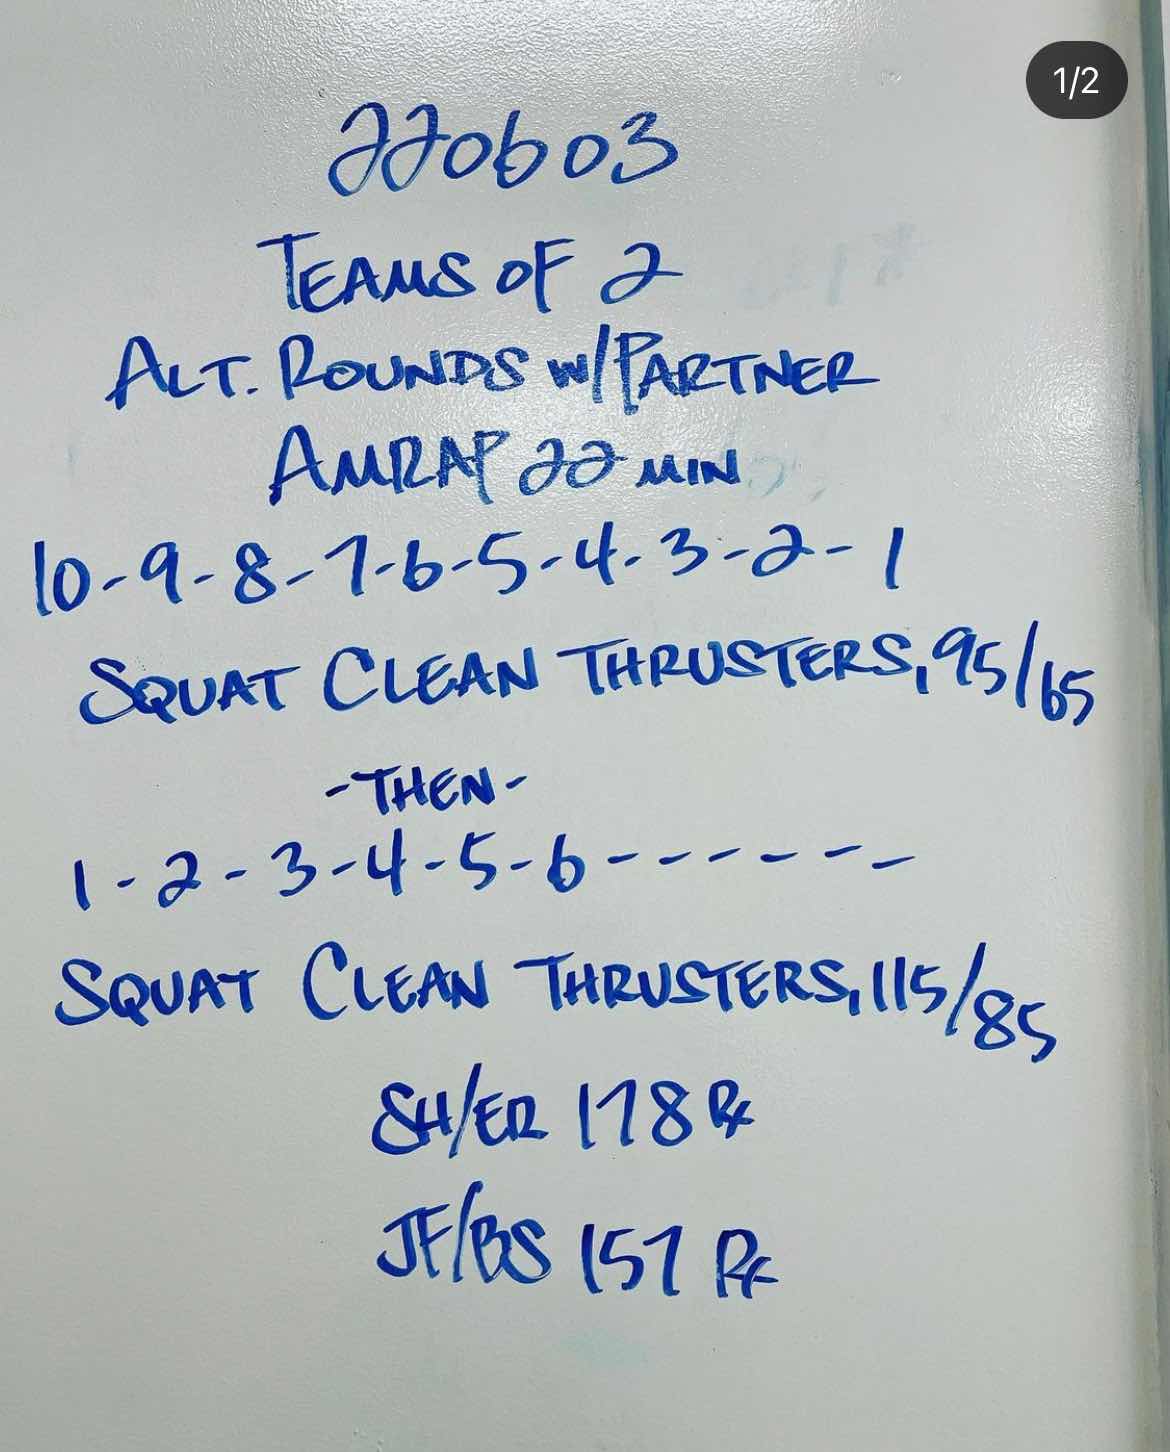 1/2
220603
TEAMS OF 2
ALT. ROUNDS W/PARTNER
AMRAP 22 MIN
10-9-8-7-6-5-4-3-2-1
SQUAT CLEAN THRUSTERS, 95/65
-THEN-
1-2-3-4-5-6-------
SQUAT CLEAN THRUSTERS, 115/85
SH/ER 178 Rx
JF/BS 157 Rx